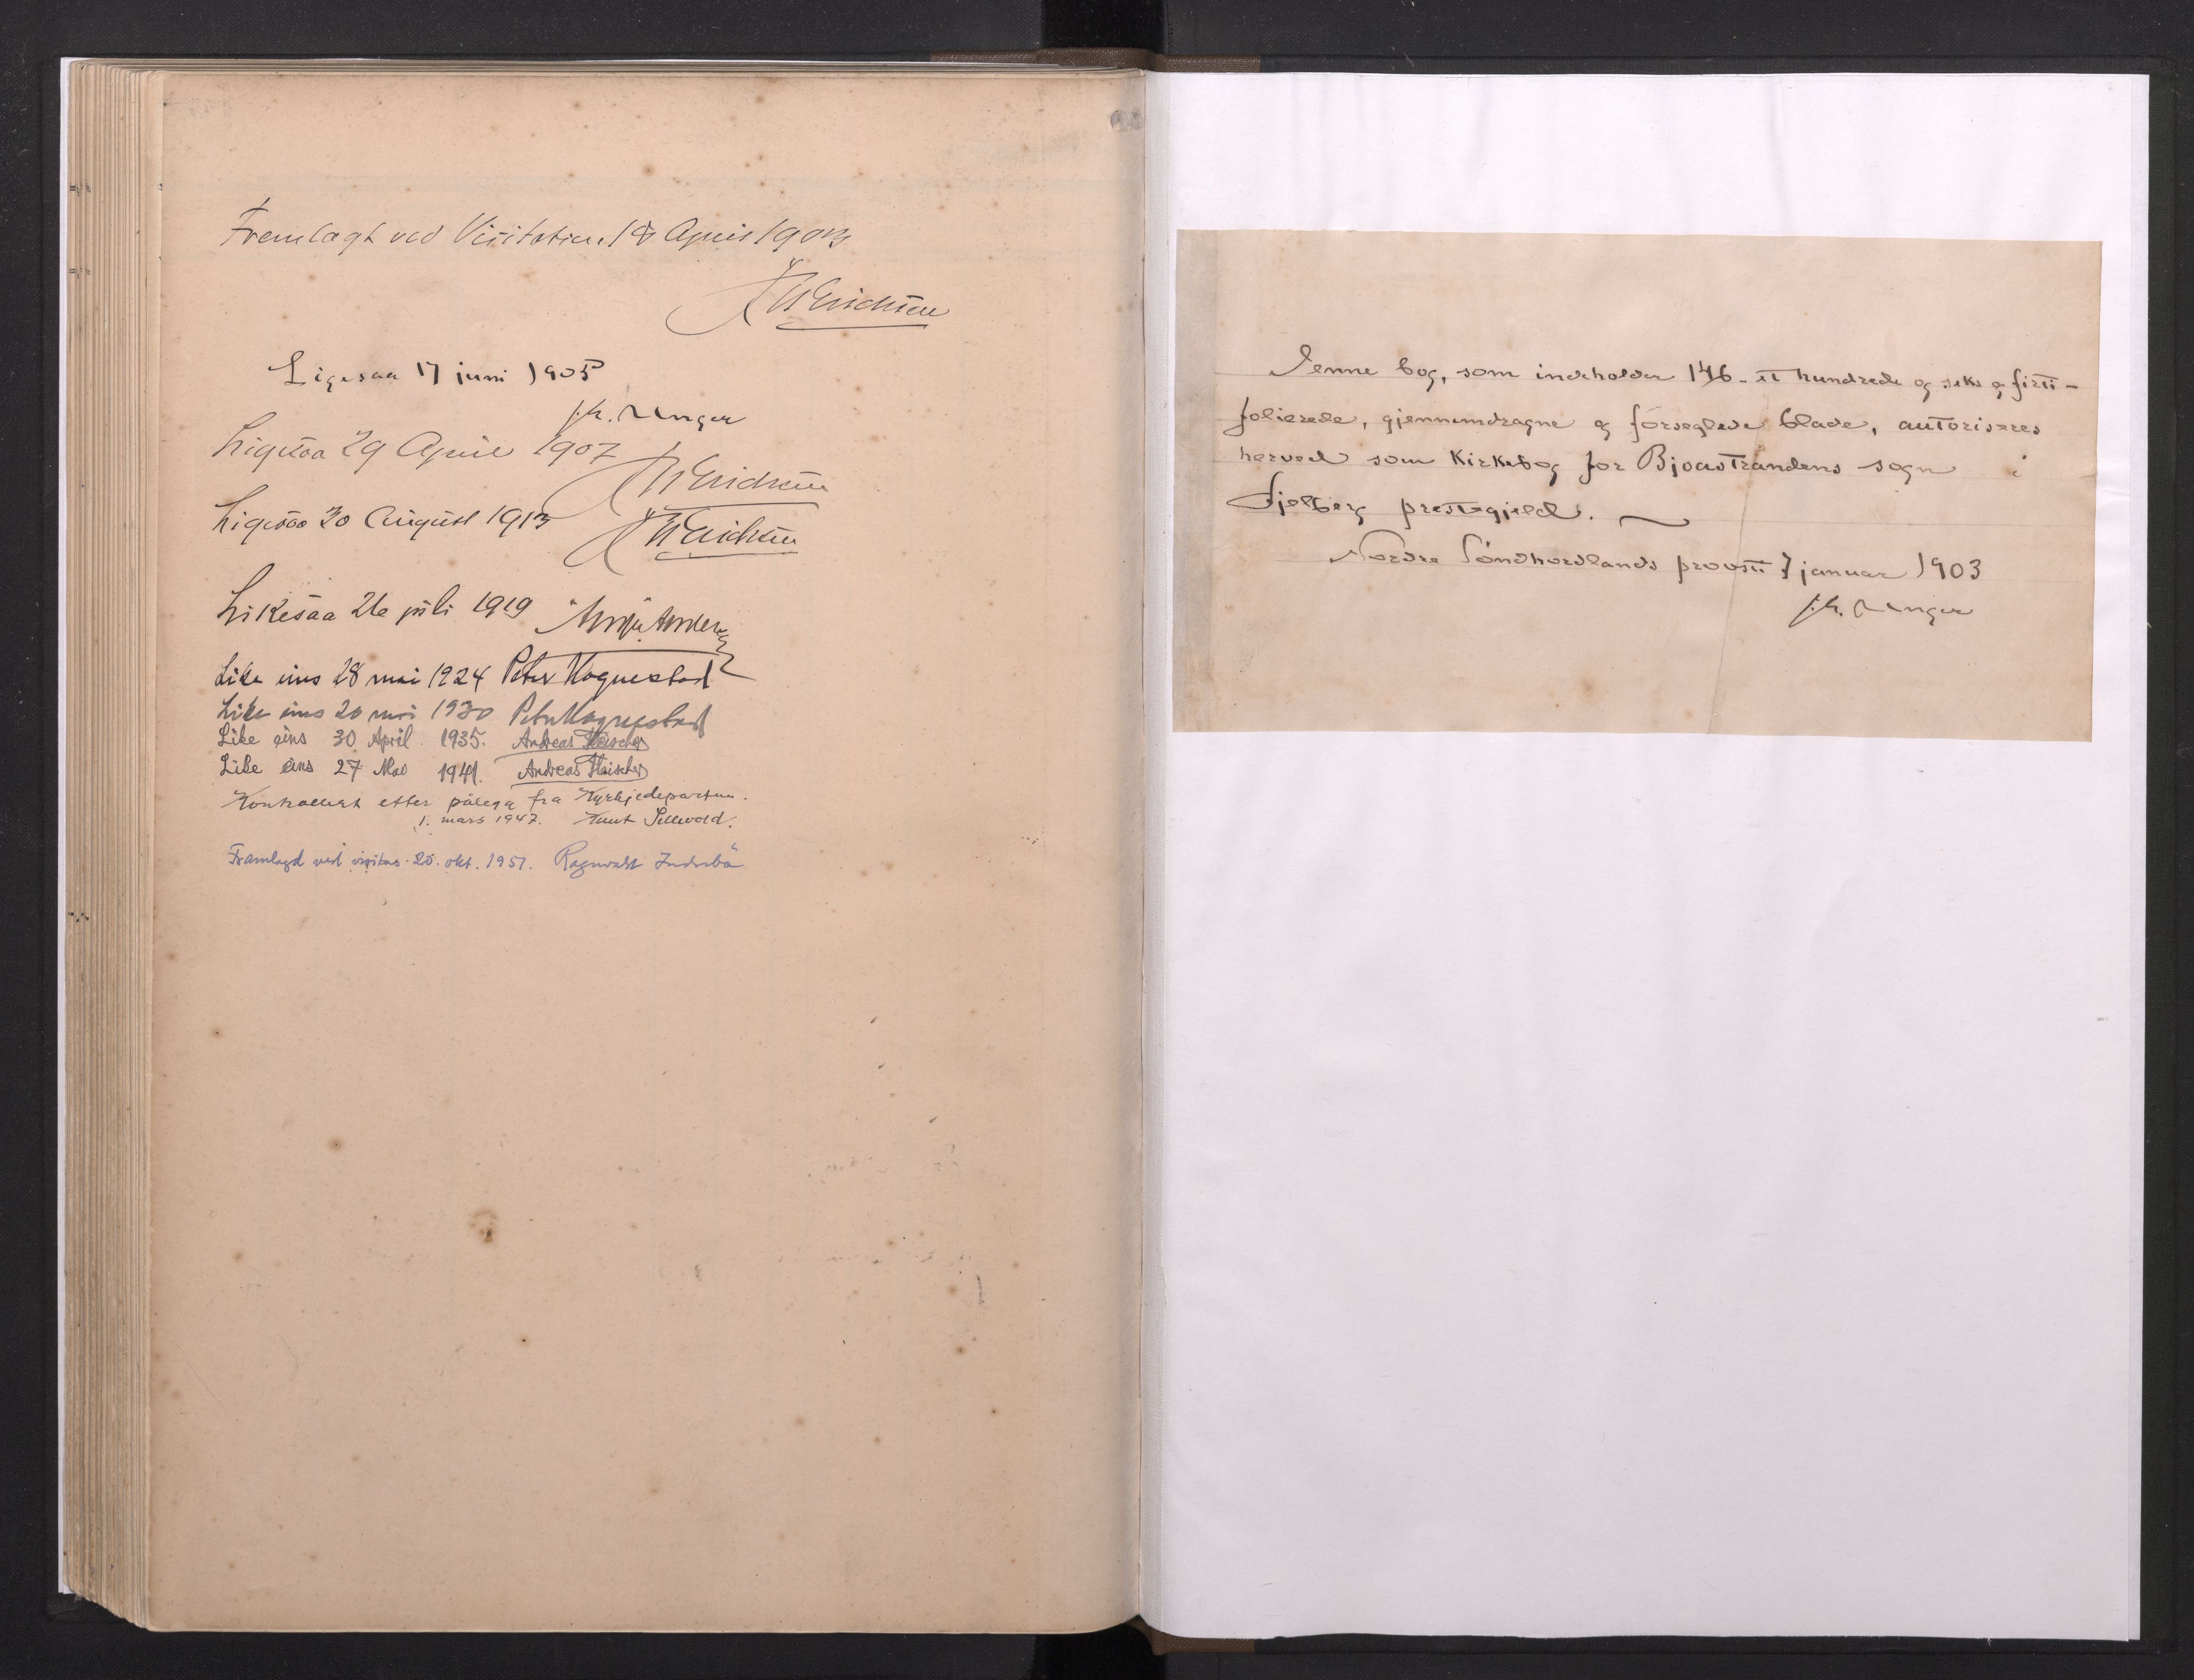 Fremlagt ved Visitatien 18 April 1903
JWErichsen
Ligesaa 17 juni 1905
J.h. Unger
Ligesaa 29 April 1907
JWErichsen
Ligesaa 30 August 1913
JWErichsen
Likesaa 26 juli 1919
Like eins 28 mai 1924 Peter Hognestad
Like eins 20 mai 1930 Peter Hognestad
Like eins 30 April 1935. Andreas Fleischer
Like eins 27 Mai 1941. Andreas Fleischer
Kontrollert etter pålegg fra Kyrkjedepartem.
1. mars 1947. Knut Sellevold.
Framlagd ved visitas 20. okt. 1951. Ragnvald Indrebø
Denne bog, som indeholder 146 - et hundrede og seks og firti -
folierede, gjennemdragne og forseglede blade, autoriseres
herved som Kirkebog for Bjoastrandens sogn i
Fjelberg prestegjeld.
Nordre Söndhordlands provsti 7 januar 1903
J.h. Unger